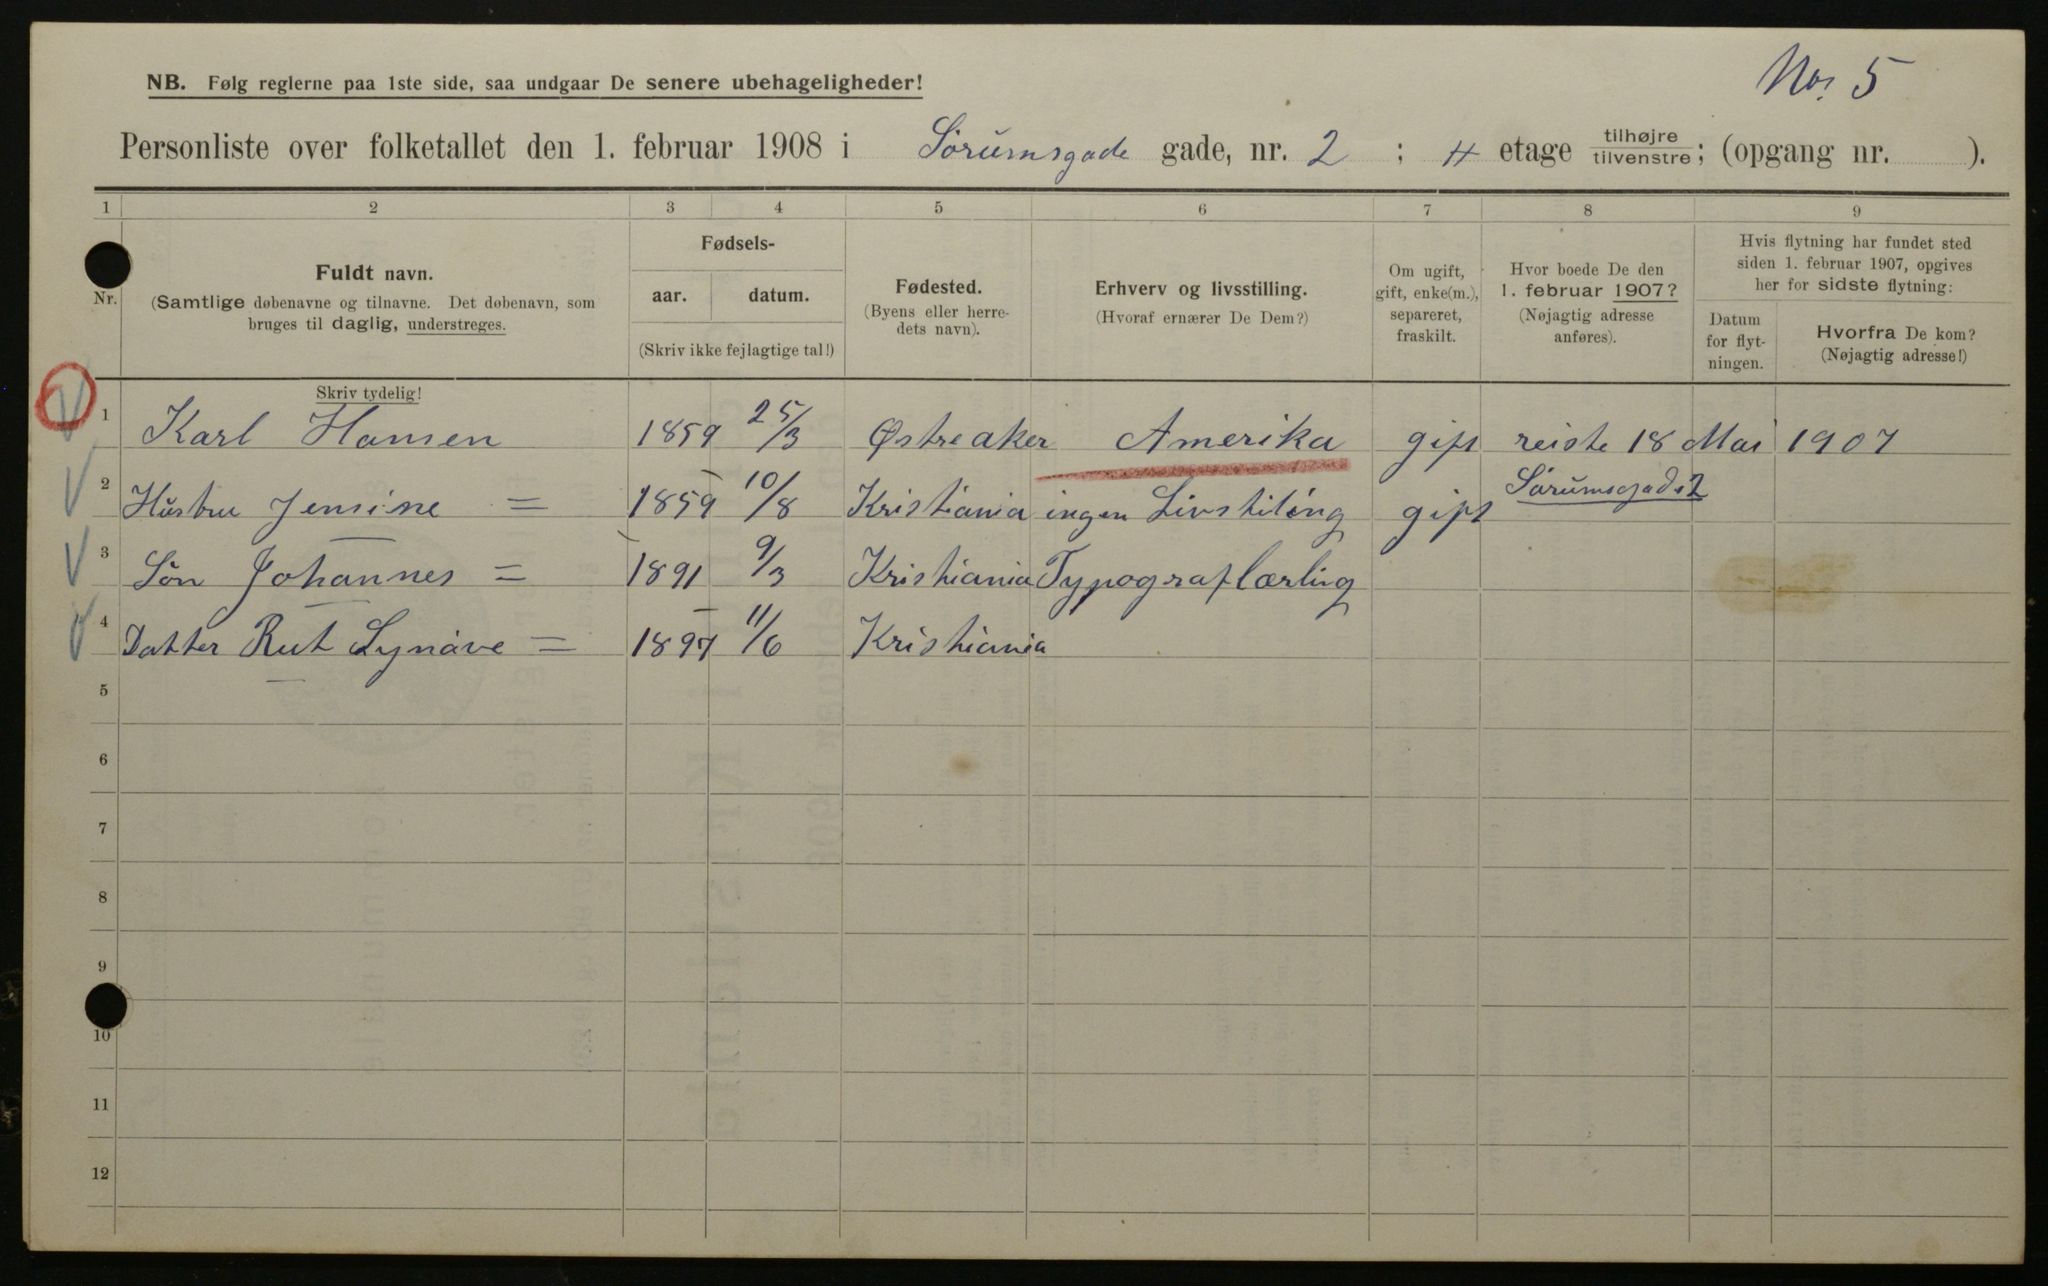 No. 5
NB. Følg reglerne paa 1ste side, saa undgaar De senere ubehageligheder!
Personliste over folketallet den 1. februar 1908 i Sørumsgade gade, nr. 2 ; 4 etage tilhøjre/tilvenstre; (opgang nr. ).
1 2 3 4 5 6 7 8 9
Nr.
Fuldt navn.
(Samtlige døbenavne og tilnavne. Det døbenavn, som
bruges til daglig, understreges.
Fødsels-
aar. datum.
(Skriv ikke fejlagtige tal!)
Fødested.
(Byens eller herre-
dets navn).
Erhverv og livsstilling.
(Hvoraf ernærer De Dem?)
Om ugift,
gift, enke(m.),
separeret,
fraskilt.
Hvor boede De den
1. februar 1907?
(Nøjagtig adresse
anføres).
Hvis flytning har fundet sted
siden 1. februar 1907, opgives
her for sidste flytning:
Datum
for flyt-
ningen.
Hvorfra De kom?
(Nøjagtig adresse!)
Skriv tydelig!
1 Karl Hansen 1859 25/3 Østreaker Amerika gift reiste 18 Mai 1907
2 Hustru Jensine = 1859 10/8 Kristiania ingen Livstiling gift Sørumsgade 2
3 Søn Johannes = 1891 9/3 Kristiania Typograflærling
4 Datter Rut Synøve = 1897 11/6 Kristiania
5
6
7
8
9
10
11
12